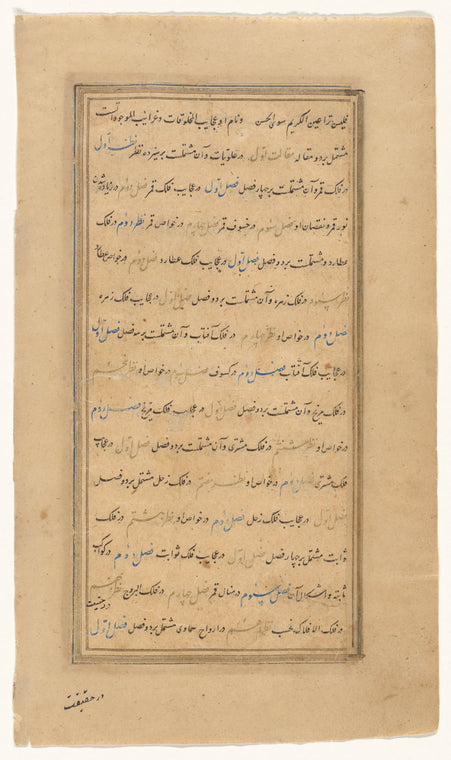 فلیس تراعین الکریم سوی الحسن و نام او عجایب المخلوقات و غرایب الموجودات است
مشتمل بر دو مقاله مقالت اول در علویات و آن مشتملست بر سیزده نظر نظر اول
در فلک قمر و آن مشتملست بر چهار فصل فصل اول در عجایب فلک قمر فصل دوم در زیاد شدن
نور قمر و نقصان او فصل سیوم در خسوف قمر فصل چهارم در خواص قمر نظر دوم در فلک
عطارد و مشتملست بر دو فصل فصل اول در عجایب فلک عطارد فصل دوم در خواص عطارد
نظر سیوم در فلک زهره و آن مشتملست بر دو فصل فصل اول در عجایب فلک زهره
فصل دوم در خواص او نظر چهارم در فلک آفتاب و آن مشتملست بر سه فصل فصل اول
در عجایب فلک آفتاب فصل دوم در کسوف فصل سیوم در خواص او نظر پنجم
در فلک مریخ و آن مشتملست بر دو فصل فصل اول در عجایب فلک مریخ فصل دوم
در خواص او نظر ششم در فلک مشتری و آن مشتملست بر دو فصل فصل اول در عجایب
فلک مشتری فصل دوم در خواص او نظر هفتم در فلک زحل مشتمل بر دو فصل
فصل اول در عجایب فلک زحل فصل دوم در خواص او نظر هشتم در فلک
ثوابت مشتمل بر چهار فصل فصل اول در عجایب فلک ثوابت فصل دوم در کواکب
ثابته و اشکال آن فصل سیوم در منازل قمر فصل چهارم در فلک البروج نظر نهم
در فلک الافلاک نظر در ارواح سماوی مشتمل بر دو فصل فصل اول
در حقیقت
در حقیقت